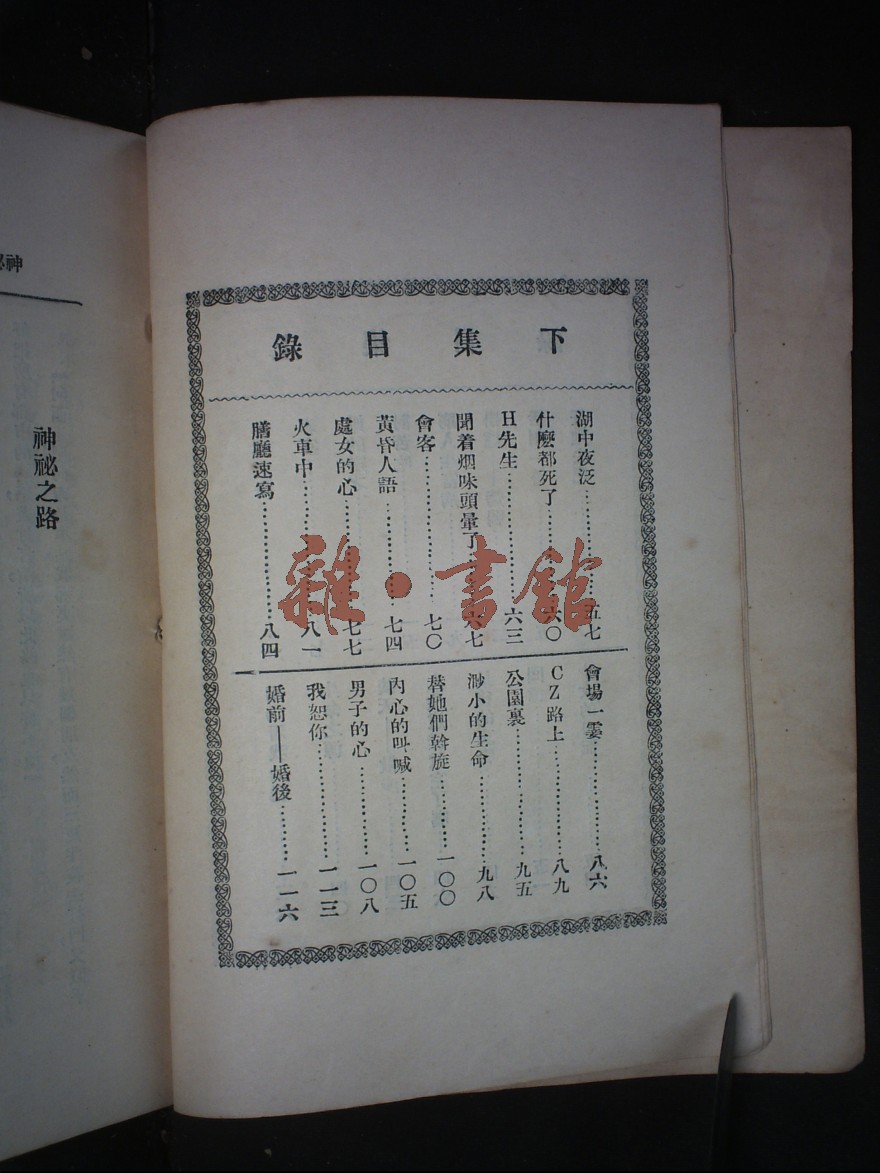 下集目錄
湖中夜泛……………五七
什麽都死了…………六〇
H先生………………六三
聞着烟味頭暈了……六七
會客…………………七〇
黃昏人語……………七四
處女的心……………七七
火車中………………八一
膳廳速寫……………八四
會場一霎……………八六
CZ路上………………八九
公園裏………………九五
渺小的生命…………九八
替她們斡旋…………一〇〇
內心的叫喊…………一〇五
男子的心……………一〇八
我恕你………………一一三
婚前——婚後………一一六
神祕之路
雜·書館